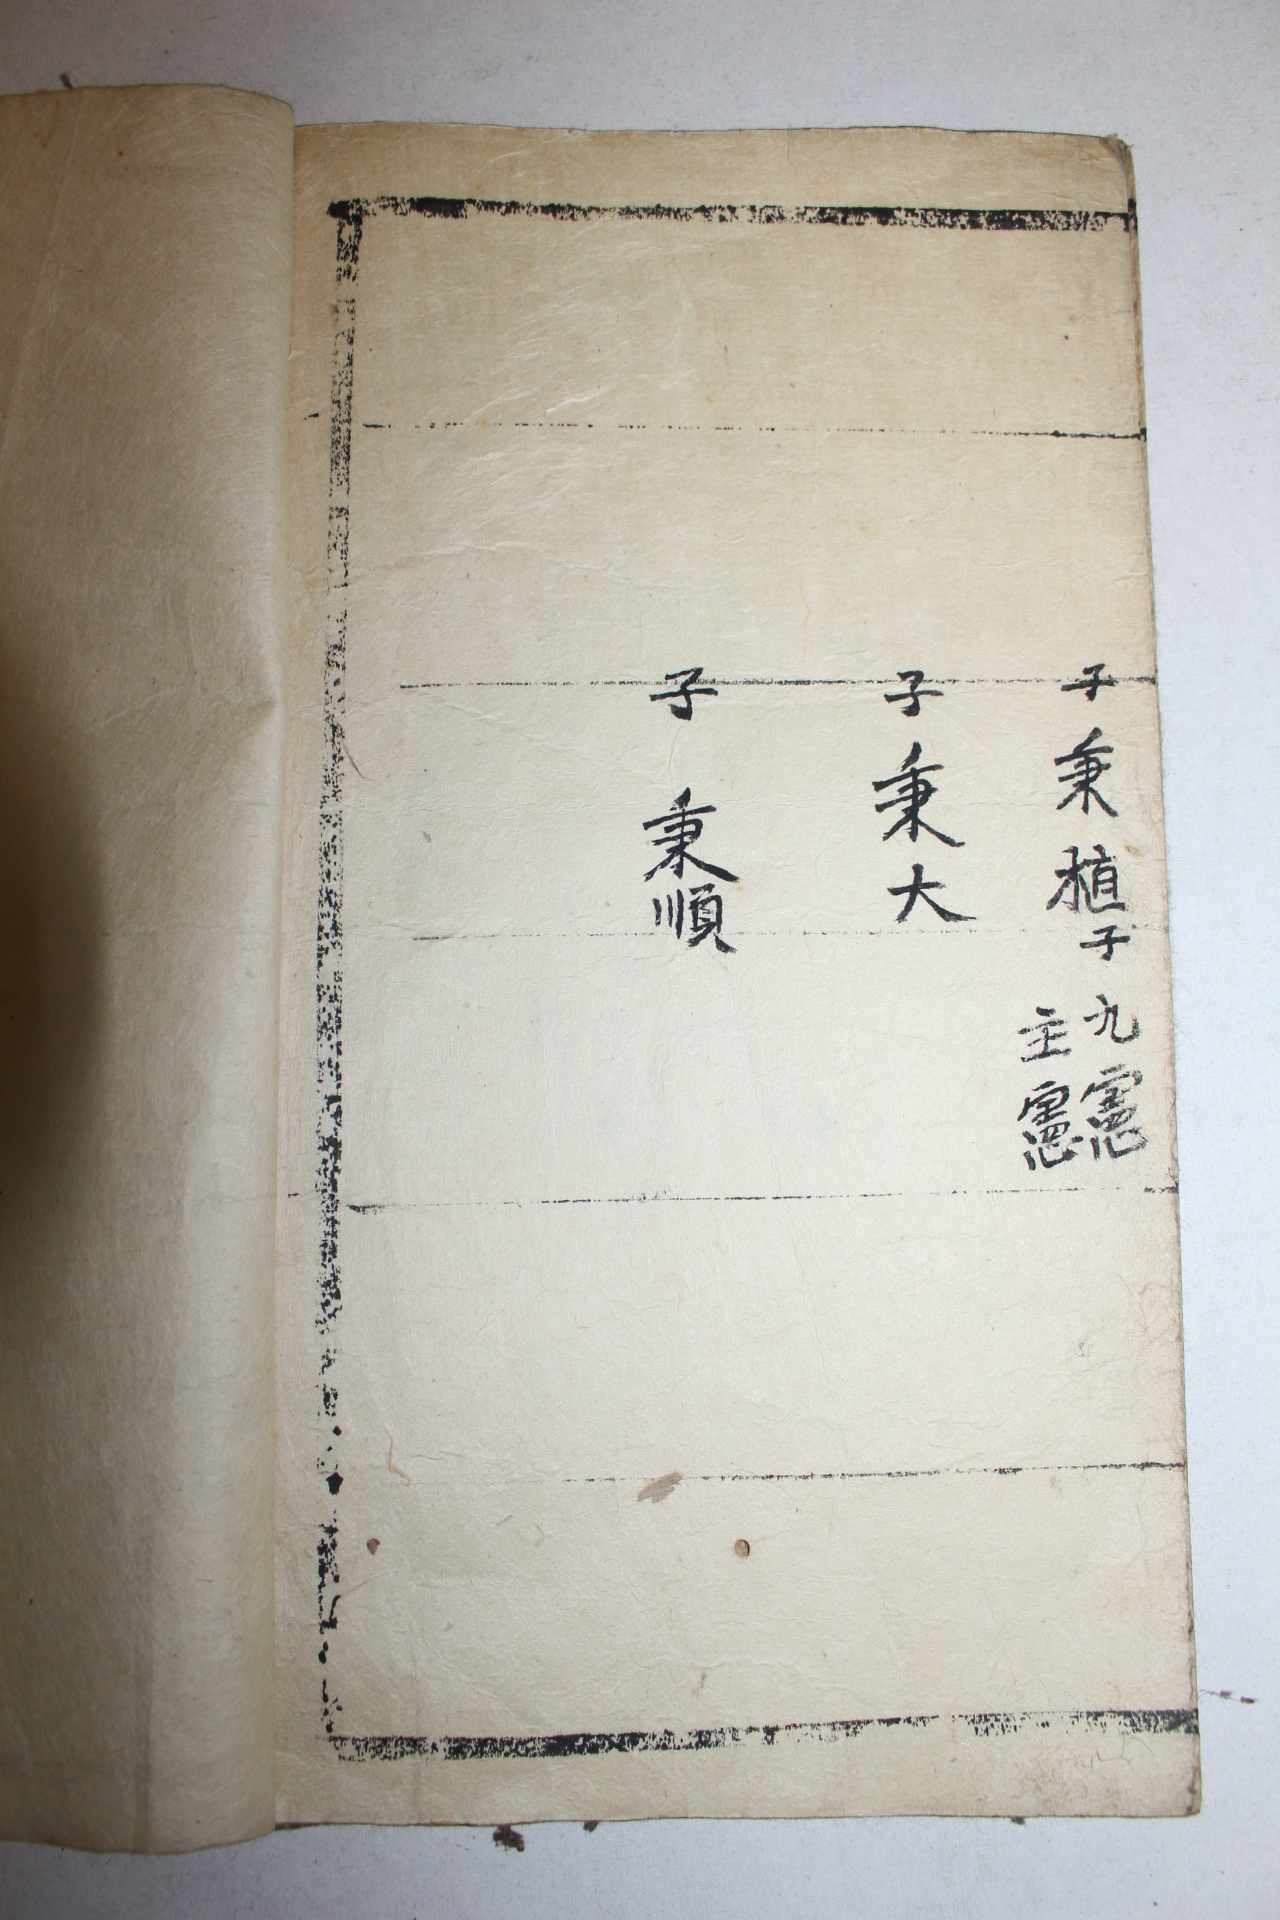 子 秉植
子 九憲
主憲
子 秉大
子 秉順